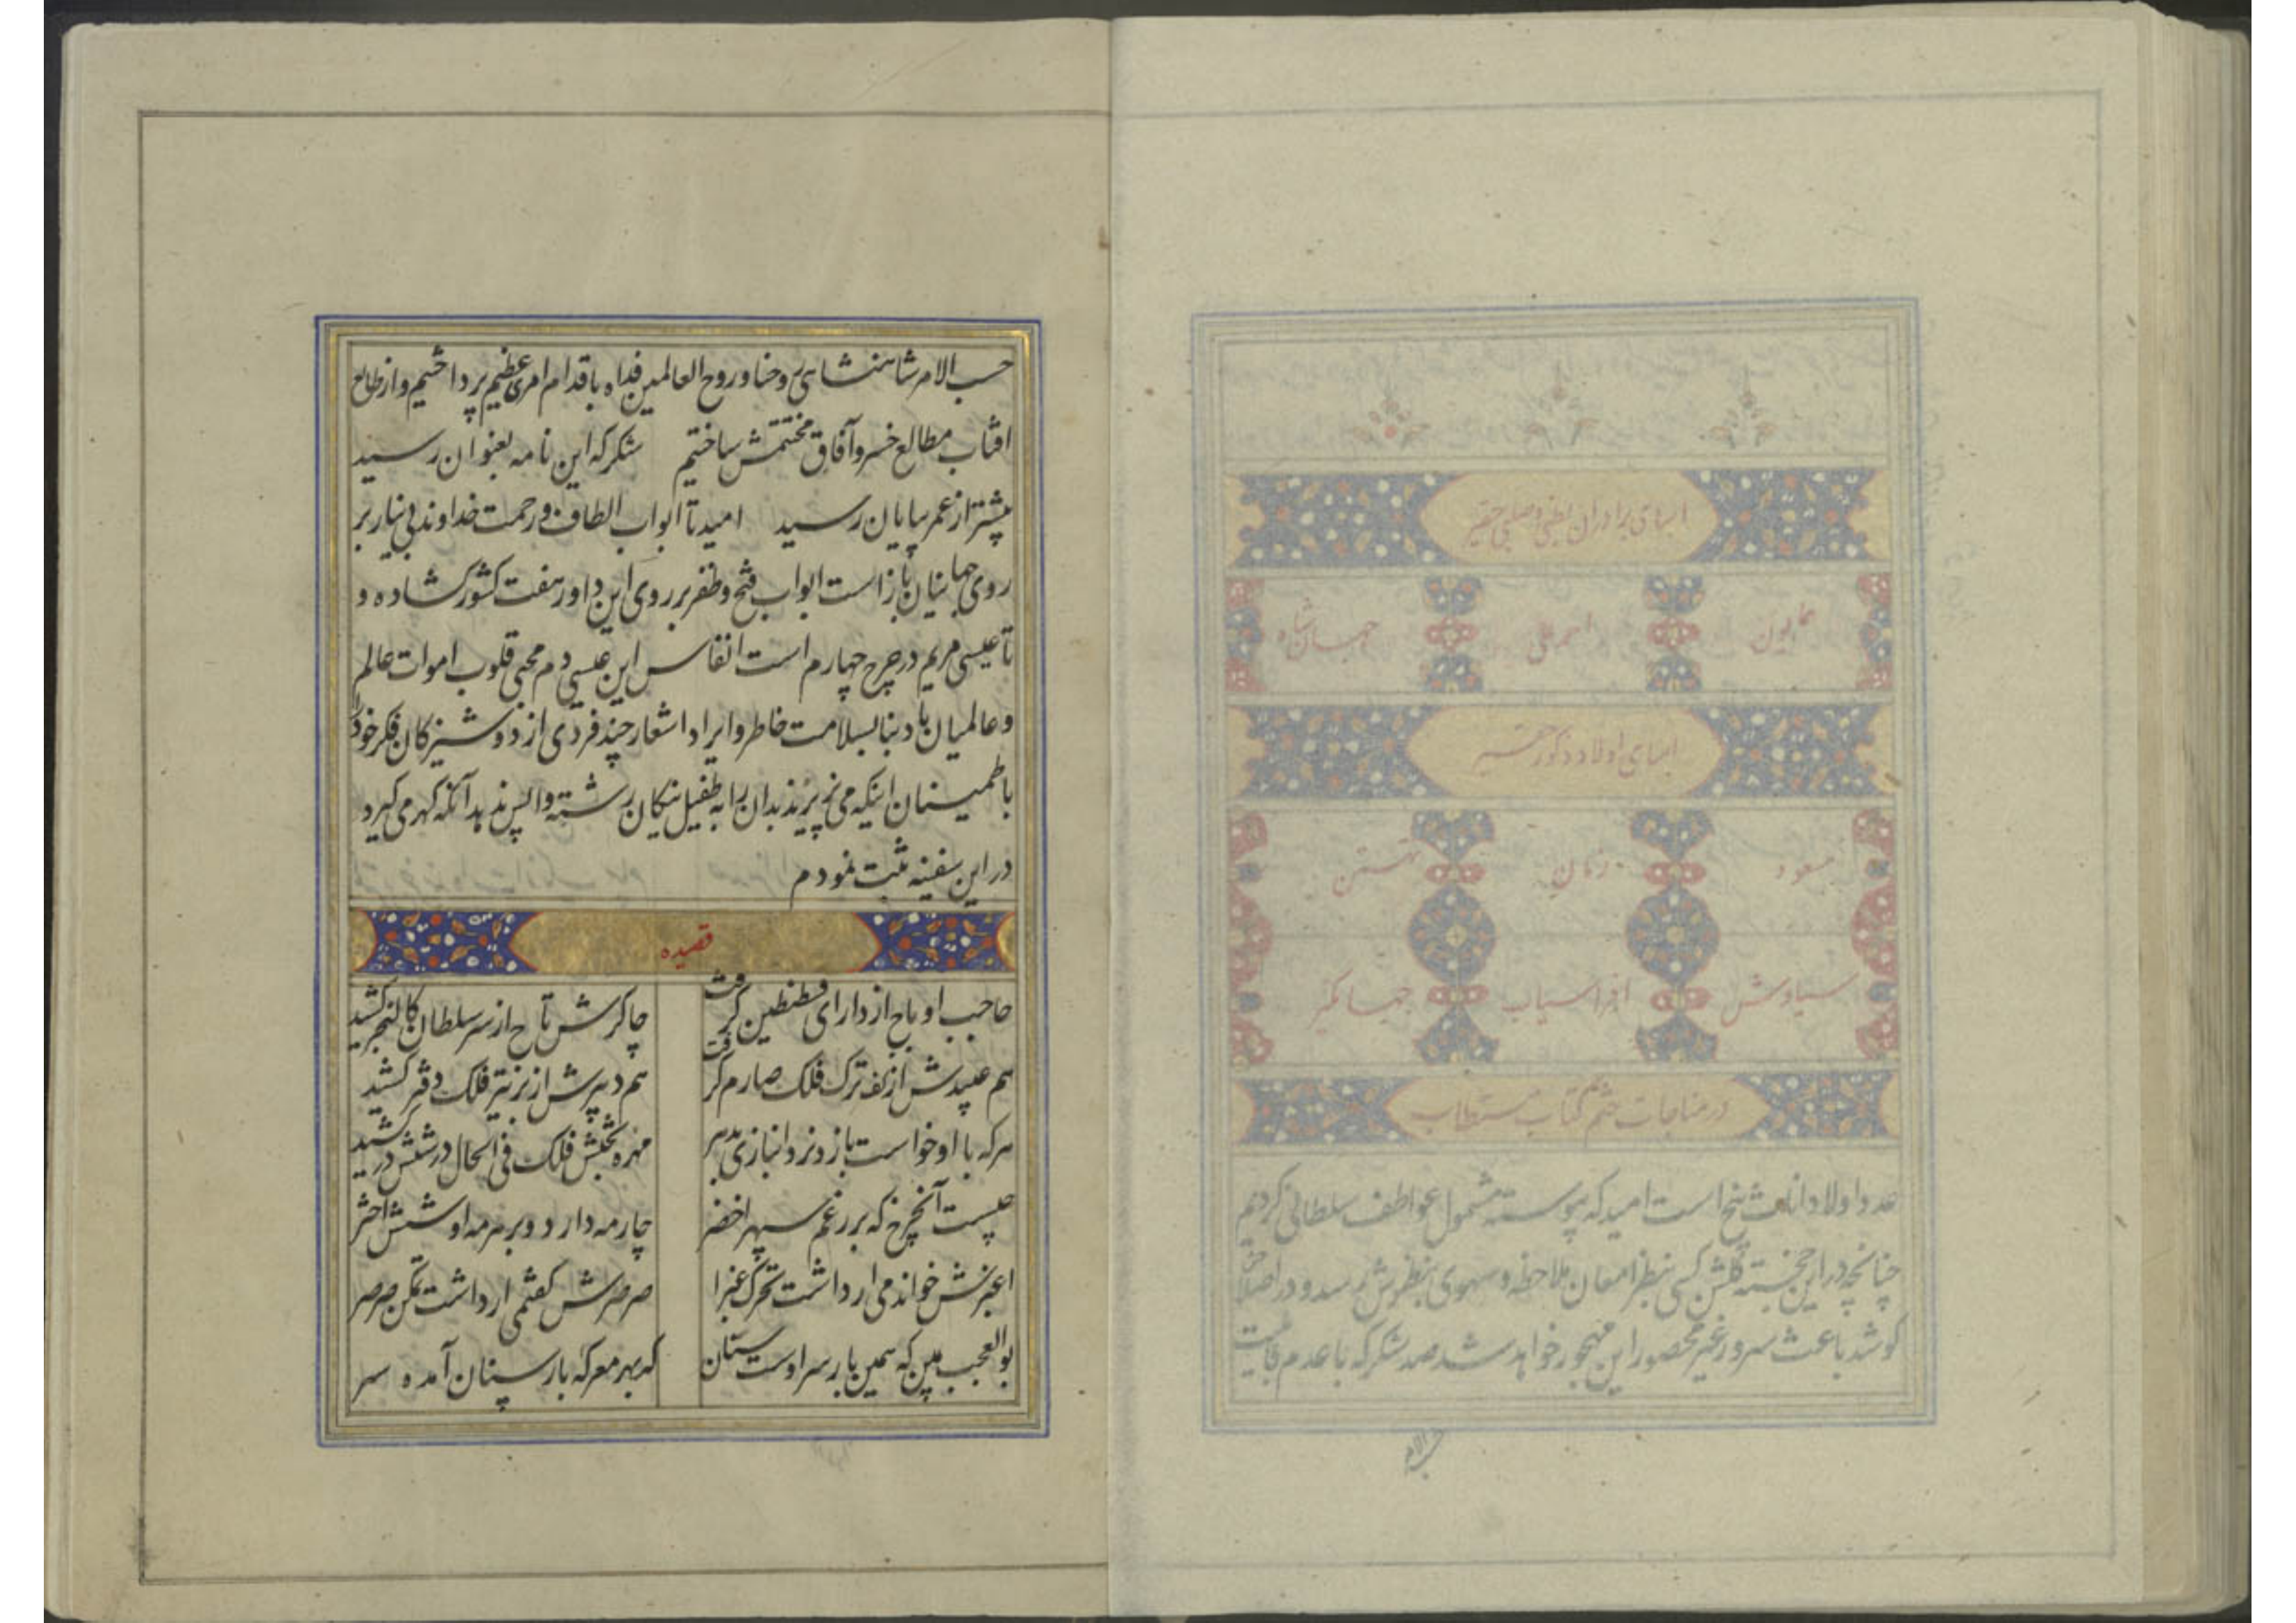 اسامی برادران بطنی و صلبی حقیر
همایون امیرعلی جهانشاه
اسامی اولاد ذکور حقیر
مسعود نریمان تهمتن
سیاوش افراسیاب جهانگیر
در مناجات ختم کتاب مستطاب
عدد اولاد اناث پنج است امید که پیوسته مشمول عواطف سلطانی کردیم
چنانچه در این خجسته گلشن کسی بنظر امعان ملاحظه و سهوی بنظرش رسد و در اصلاحش
کوشد باعث سرور غیر محصور این مهجور خواهد شد صد شکر که با عدم قابلیت
حسب الامر
حسب الامر شاهنشاهی روحنا و روح العالمین فداه باقدام امری عظیم پرداختیم و از طالع
افتاب مطالع خسرو آفاق مختتمش ساختیم شکر که این نامه بعنوان رسید
پیشتر از عمر بپایان رسید امید تا ابواب الطاف و رحمت خداوند بی نیاز بر
روی جهانیان باز است ابواب فتح و ظفر بر روی این داور هفت کشور گشاده و
تا عیسی مریم در چرخ چهارم است انفاس این عیسی دم محیی قلوب اموات عالم
و عالمیان باد بنا بسلامت خاطر و ایراد اشعار چند فردی از دوشیزکان فکر خود را
با طمینان اینکه می نخرند بدان را به طفیل نیکان رشته واپس ندهد آنکه گهر می گیرد
در این سفینه ثبت نمودم
قصیده
حاجب او باج از دارای قسطنطین گرفت چاکرش تاج از سر سلطان کالنجر کشید
هم عبیدش از کف ترک فلک صارم گرفت هم دبیرش از بر تیر فلک دفتر کشید
هرکه با او خواست بازد نرد انبازی بدهر مهره بختش فلک فی الحال در ششدر کشید
چیست آنچرخ که بر رغم سپهر اخضر چار مه دارد و بر هر مه او شش اختر
اغبرش خواندمی ار داشت تحرک غبرا صرصرش گفتمی ار داشت تمکن صرصر
بوالعجب بین که همین بار سر اوست ستان که بهر معرکه بار سپنان آمده سر